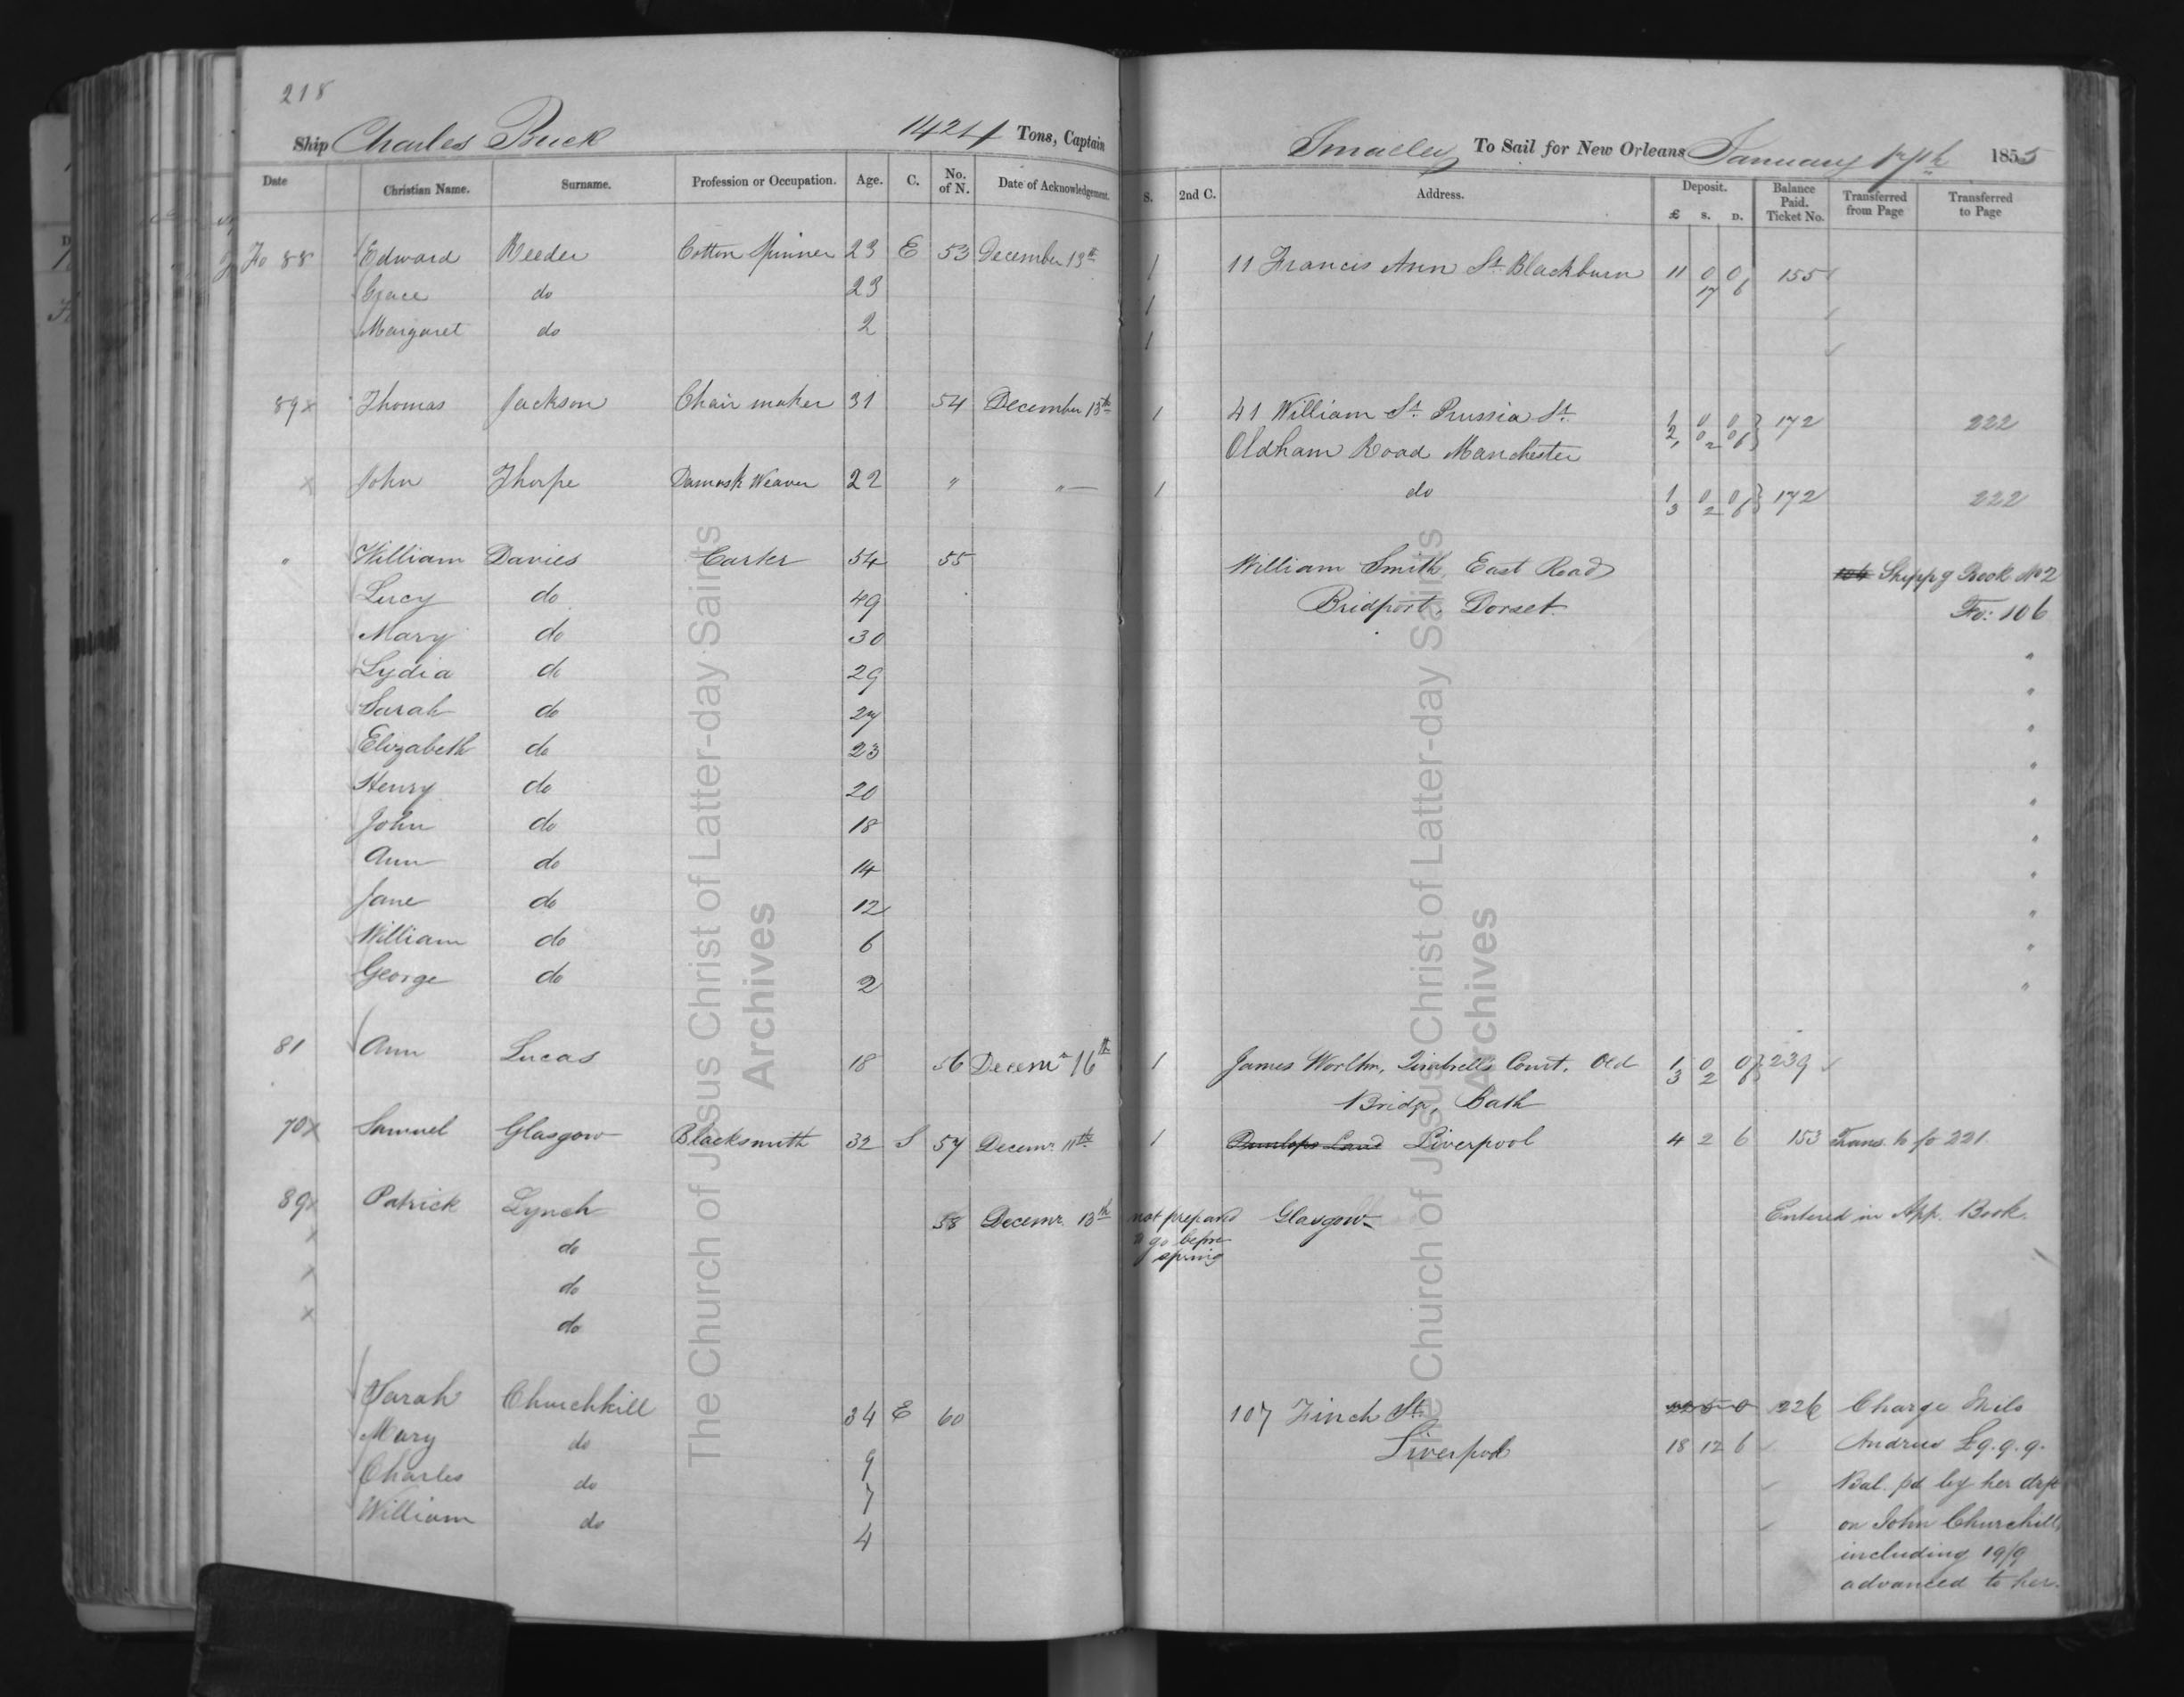 218
Ship Charles Buck 1424 Tons, Captain Smalley To Sail for New Orleans January 17th 1855
Date Christian Name. Surname. Profession or Occupation. Age. C. No. of N. Date of Acknowledgement. S. 2nd C. Address. Deposit. £ S. D. Balance Paid. Ticket No. Transferred from Page Transferred to Page
Fo 88 Edward Reeder Cotton Spinner 23 E 53 December 13th 1 11 Francis Ann St Blackburn 11 0 0 155
Grace do 23 1 17 6
Margaret do 2 1
89 x Thomas Jackson Chair maker 31 54 December 13th 1 41 William St. Prussia St. 1 0 0 172 222
Oldham Road Manchester 2 0 0 2 6
x John Thorpe Damask Weaver 22 " " 1 do 1 0 0 172 222
3 2 6
" William Davies Carter 54 55 William Smith East Road 104 Shippg Book No 2
Lucy do 49 Bridport, Dorset Fo: 106
Mary do 30 "
Lydia do 29 "
Sarah do 27 "
Elizabeth do 23 "
Henry do 20 "
John do 18 "
Ann do 14 "
Jane do 12 "
William do 6 "
George do 2 "
81 Ann Lucas 18 56 Decemr 16th 1 James Court, Old 1 0 0 239
Bridge, Bath 3 2 6
70 x Samuel Glasgow Blacksmith 32 S 57 Decemr. 11th 1 Dunlops Land Liverpool 4 2 6 153 Trans. to fo 221.
89 x Patrick Lynch 58 Decemr. 13th not prepared Glasgow Entered in App. Book.
x do to go before
x do spring
x do
Sarah Churchhill 34 E 60 107 Finch St. 226 Charge
Mary do 9 Liverpool 18 12 6 Andrew £9.9.9.
Charles do 7 Bal. pd by her drft
William do 4 on John Churchill,
including 19/9
advanced to her.
The Church of Jesus Christ of Latter-day Saints
Archives
The Church of Jesus Christ of Latter-day Saints
Archives